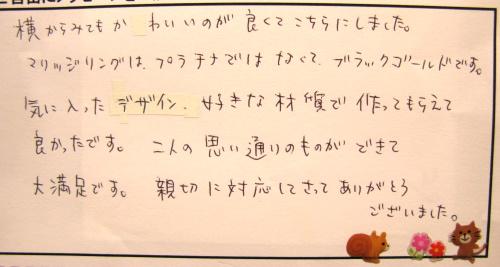 横からみてもかわいいのが良くてこちらにしました。
マリッジリングは、プラチナではなくて、ブラックゴールドです。
気に入ったデザイン、好きな材質で作ってもらえて
良かったです。二人の思い通りのものができて
大満足です。親切に対応して下さってありがとう
ございました。